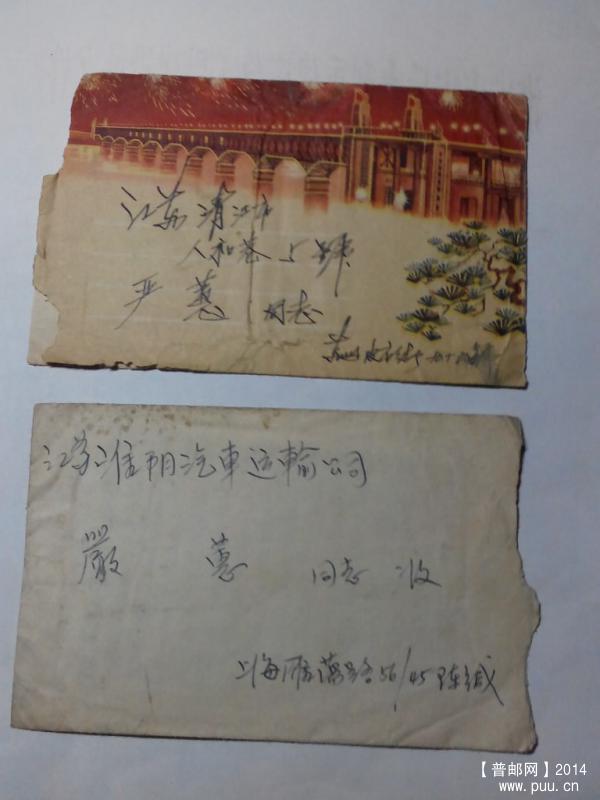 江苏清江市
人和巷5號
严蕙 同志
苏州
江苏淮阴汽車运輸公司
嚴蕙 同志 收
上海雁蕩路56/45陈缄
【普邮网】2014
www.puu.cn